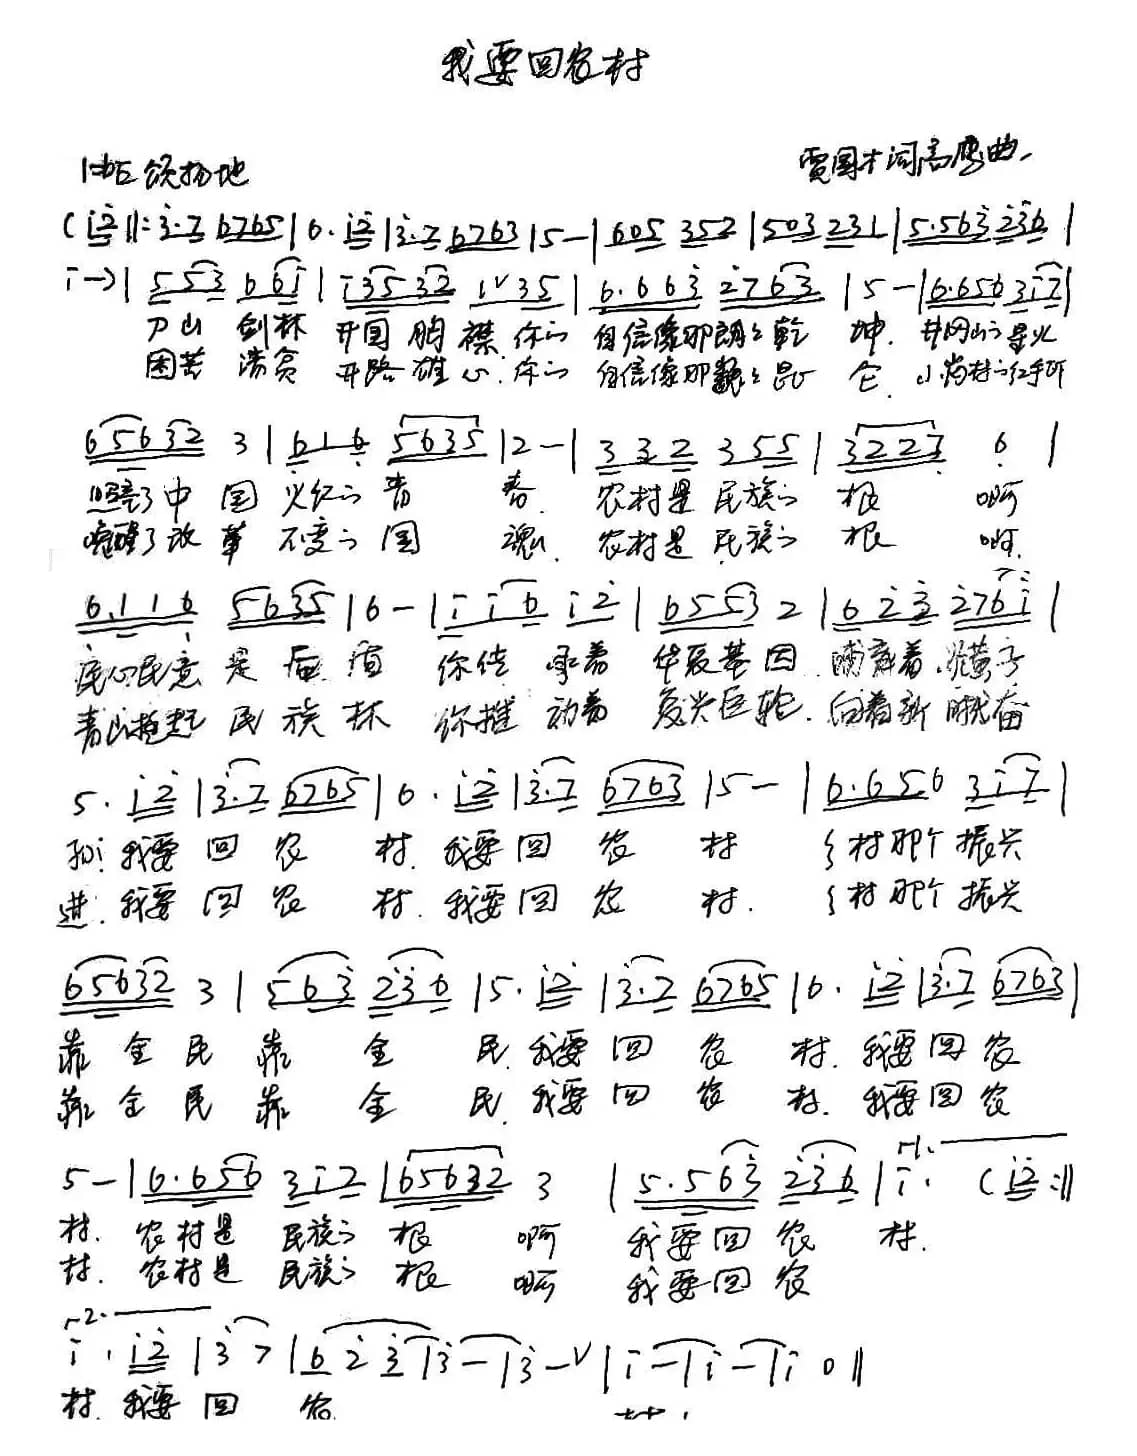 我要回农村
颂扬地
贾国才词 高鹰曲
(i2‖:3·7 6765|6·i2|3·7 6763|5-|605 352|503 231|5·563 236|
i-)|553 66i|i3532 1∨35|6·663 2763|5-|6·656 3i7|
刀山 剑林 开国 胸襟.你的 自信像那朗朗乾 坤.井冈山的星火
困苦 清贫 开路雄心.你的 自信像那巍巍昆 仑.小岗村的红手印
65632 3|616 5635|2-|332 355|3227 6|
照亮了中国 火红的青 春. 农村是民族的根 啊
唤醒了改革 不变的国 魂. 农村是民族的根 啊.
6116 5635|6-|ii6 i2|6553 2|623 276i|
民心民意是 你传承着 华夏基因.哺育着炎黄子
青山挺起民族林 你推动着 复兴巨轮.向着新时代奋
5·i2|3·7 6765|6·i2|3·7 6763|5-|6·656 3i7|
孙!我要回农 村.我要回农 村 乡村那个振兴
进.我要回农 村.我要回农 村. 乡村那个振兴
65632 3|563 236|5·i2|3·7 6765|6·i2|3·7 6763|
靠全民 靠 全 民.我要回农 村.我要回农
靠全民 靠 全 民.我要回农 村.我要回农
5-|6·656 3i7|65632 3|5·563 236|i·(i2:‖
村. 农村是民族的根 啊 我要回农 村.
村. 农村是民族的根 啊 我要回农
i·i2|3 7|623|3-|3-∨|i-|i-|i 0‖
村.我要回 农